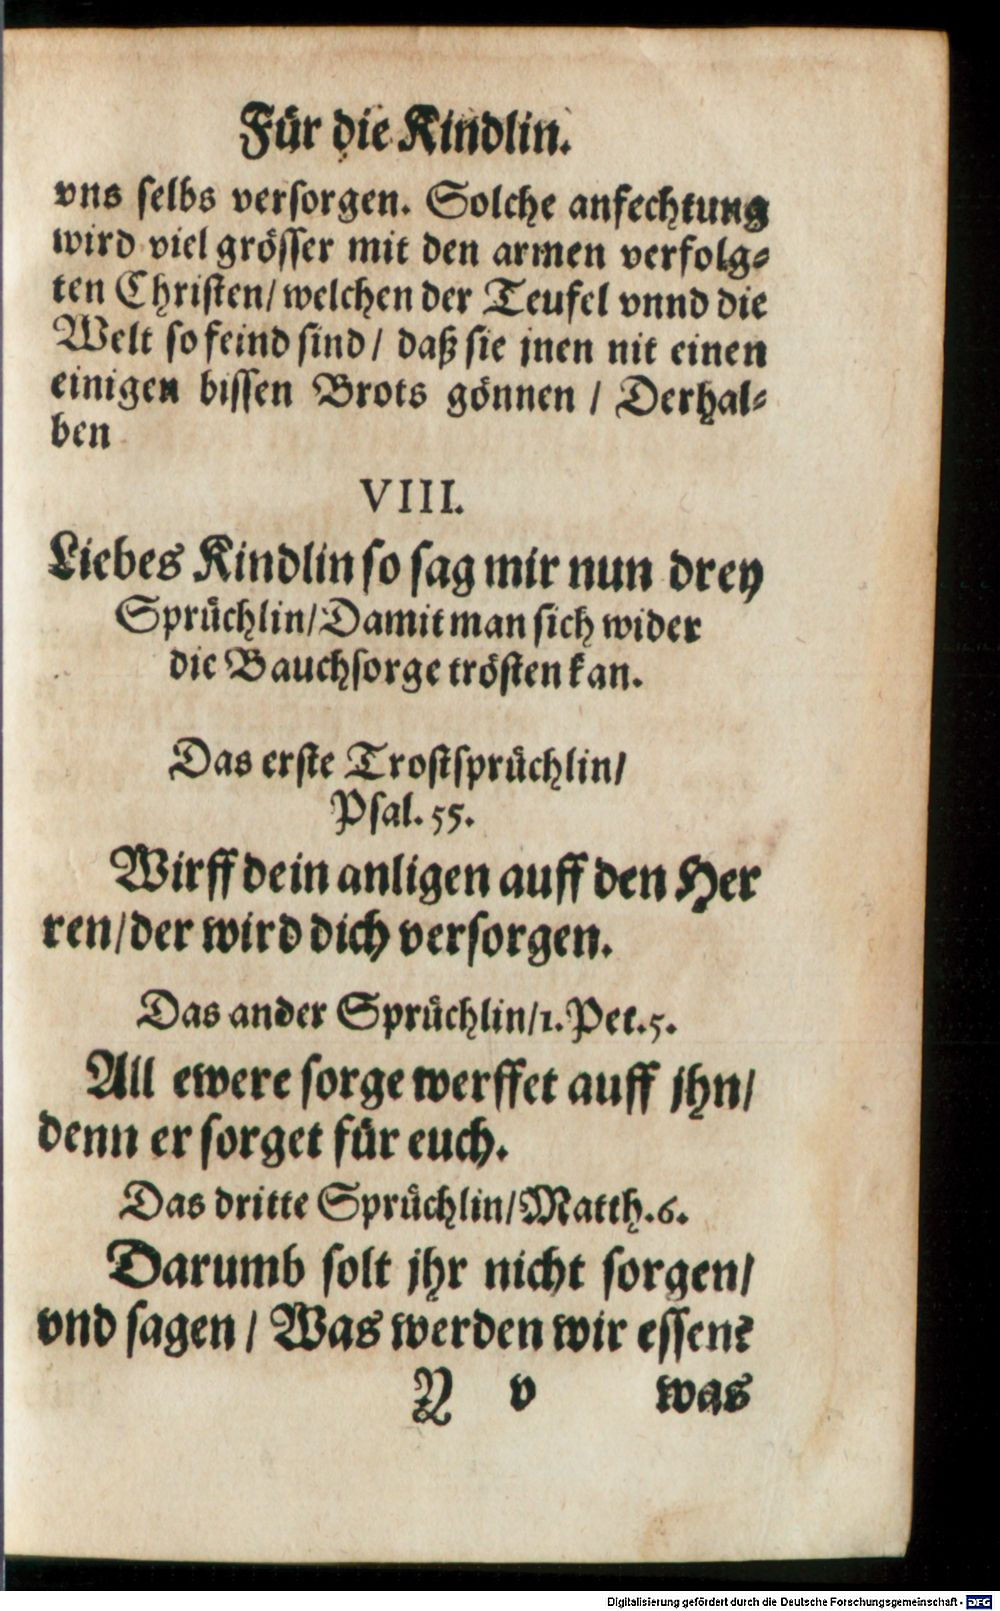 Für die Kindlin.
vns selbs versorgen. Solche anfechtung
wird viel grösser mit den armen verfolg-
ten Christen/ welchen der Teufel vnnd die
Welt so feind sind/ daß sie jnen nit einen
einigen bissen Brots gönnen / Derhal-
ben
VIII.
Liebes Kindlin so sag mir nun drey
Sprüchlin/ Damit man sich wider
die Bauchsorge trösten kan.
Das erste Trostsprüchlin/
Psal. 55.
Wirff dein anligen auff den Her
ren/ der wird dich versorgen.
Das ander Sprüchlin/ 1. Pet. 5.
All ewere sorge werffet auff jhn/
denn er sorget für euch.
Das dritte Sprüchlin/ Matth. 6.
Darumb solt jhr nicht sorgen/
vnd sagen / Was werden wir essen?
Y v was
Digitalisierung gefördert durch die Deutsche Forschungsgemeinschaft - DFG